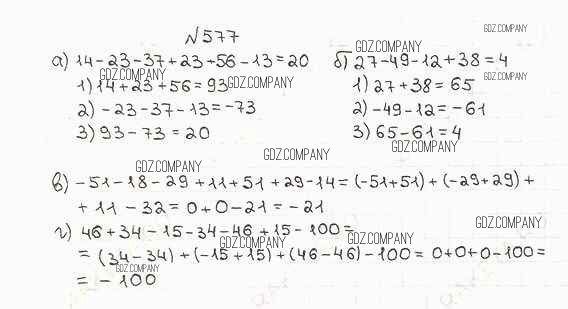 №577
GDZ.COMPANY
а) 14-23-37+23+56-13=20 б) 27-49-12+38=4
GDZ.COMPANY GDZ.COMPANY
1) 14+23+56=93 1) 27+38=65
GDZ.COMPANY GDZ.COMPANY
2) -23-37-13=-73 2) -49-12=-61
3) 93-73=20 3) 65-61=4
GDZ.COMPANY
GDZ.COMPANY GDZ.COMPANY
в) -51-18-29+11+51+29-14=(-51+51)+(-29+29)+
+11-32=0+0-21=-21
GDZ.COMPANY
г) 46+34-15-34-46+15-100=
GDZ.COMPANY GDZ.COMPANY
=(34-34)+(-15+15)+(46-46)-100=0+0+0-100=
GDZ.COMPANY
=-100